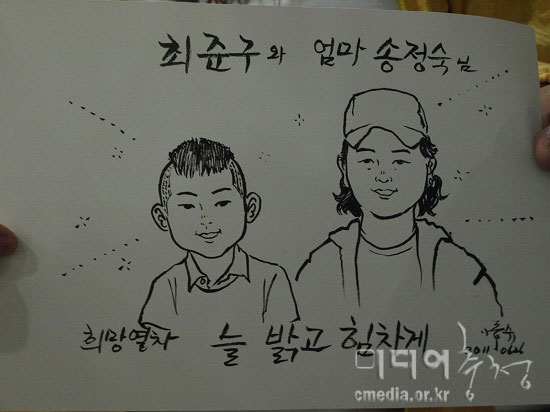 최준구와 엄마 송정숙님
희망열차 늘 밝고 힘차게
2011 0626
미디어충청
cmedia.or.kr